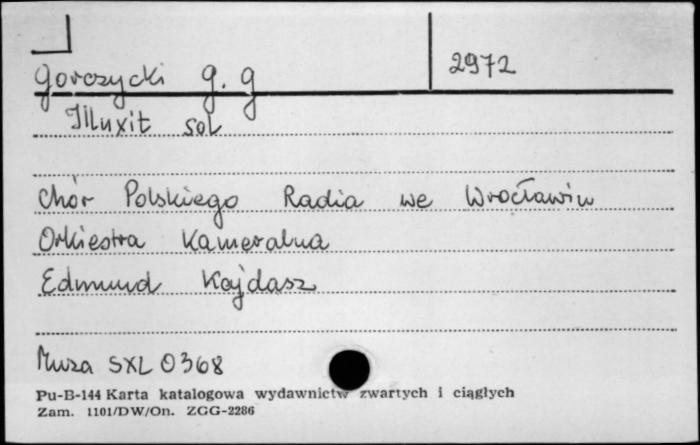 Gorczycki G. G
2972
Illuxit sol
Chór Polskiego Radia we Wrocławiu
Orkiestra Kameralna
Edmund Kajdasz
Muza SXL 0368
Pu-B-144 Karta katalogowa wydawnictw zwartych i ciągłych
Zam. 1101/DW/On. ZGG-2286